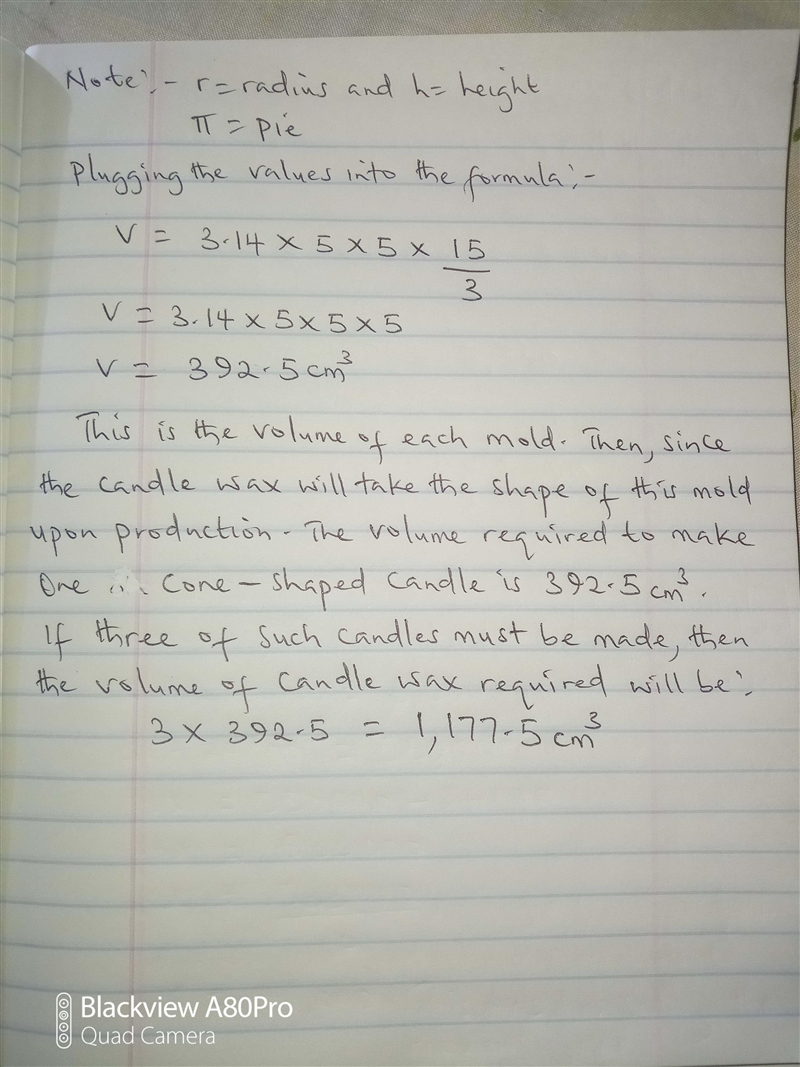 Note:- r=radius and h= height
π = pie
Plugging the values into the formula:-
V = 3.14 × 5 × 5 × 15/3
V = 3.14 × 5 × 5 × 5
V = 392.5 cm³
This is the volume of each mold. Then, since
the candle wax will take the shape of this mold
upon production. The volume required to make
One cone-shaped candle is 392.5 cm³.
If three of such candles must be made, then
the volume of candle wax required will be:
3 × 392.5 = 1,177.5 cm³
Blackview A80Pro
Quad Camera